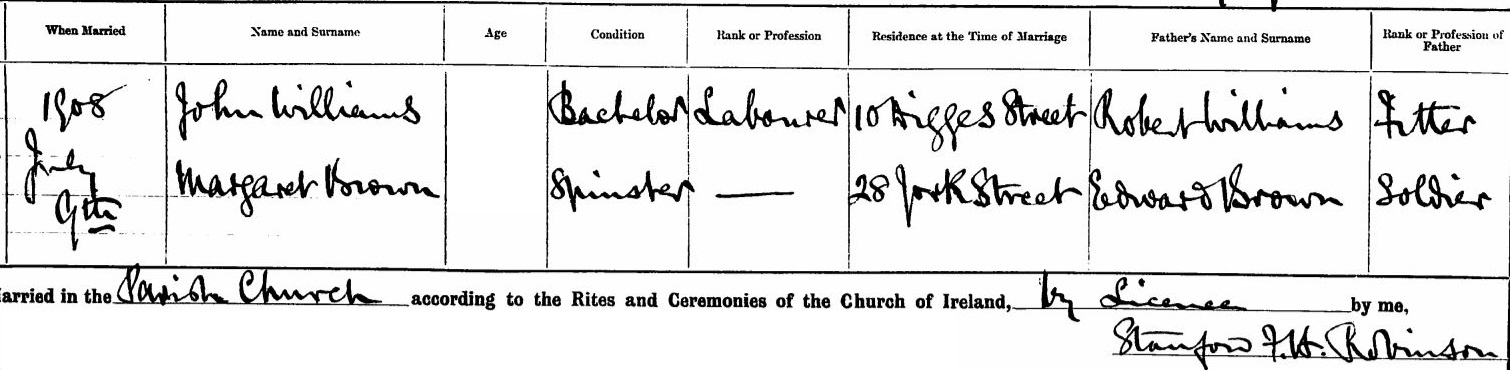 When Married Name and Surname Age Condition Rank or Profession Residence at the Time of Marriage Father's Name and Surname Rank or Profession of Father
1908 John Williams Bachelor Labourer 10 Digges Street Robert Williams Fitter
July
9th Margaret Brown Spinster — 28 York Street Edward Brown Soldier
arried in the Parish Church according to the Rites and Ceremonies of the Church of Ireland, by Licence by me,
Stanford F.H. Robinson